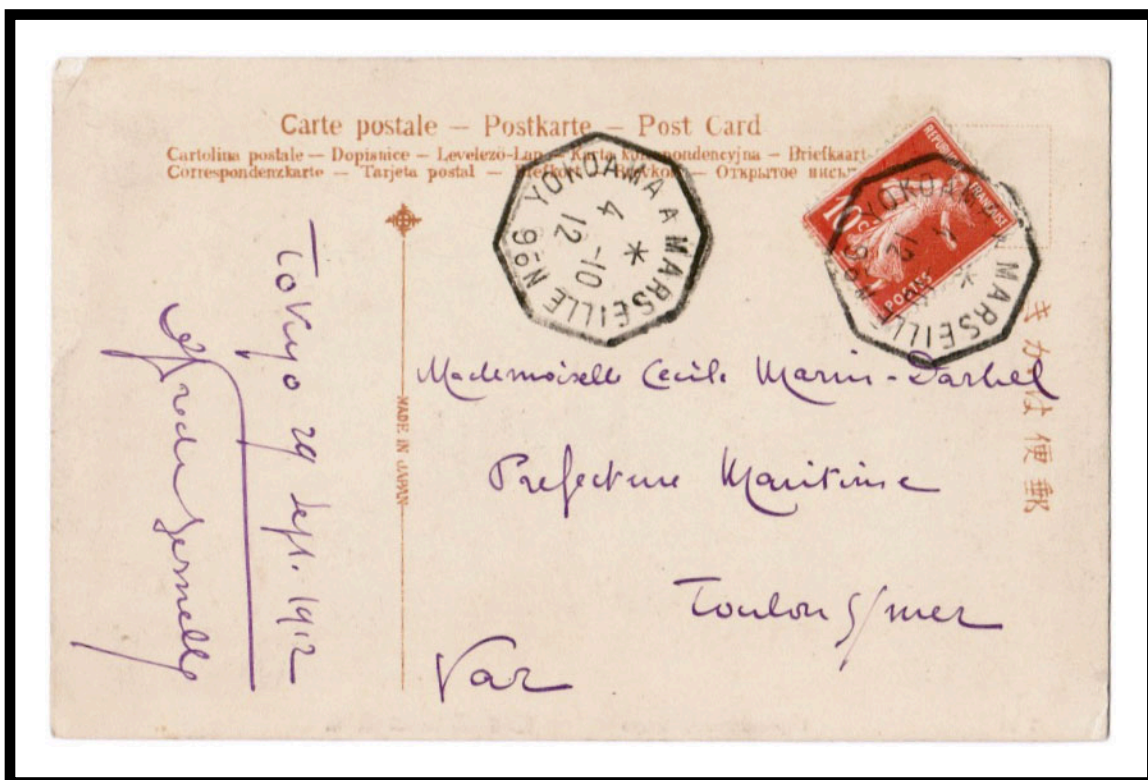 Carte postale – Postkarte – Post Card
Cartolina postale – Dopisnice – Levelező-Lap – Karta korespondencyjna – Briefkaart
Correspondenzkarte – Tarjeta postal – Brefkort – Brevkort – Открытое письмо
YOKOAMA A MARSEILLE No 9
4 -10
12
RÉPUBLIQUE FRANÇAISE
10c
POSTES
YOKOAMA A MARSEILLE No 9
4
12
郵便はかき
MADE IN JAPAN
Tokyo 29 sept. 1912
Mademoiselle Cecile Marin-Darbel
Prefecture Maritime
Toulon s/mer
Var